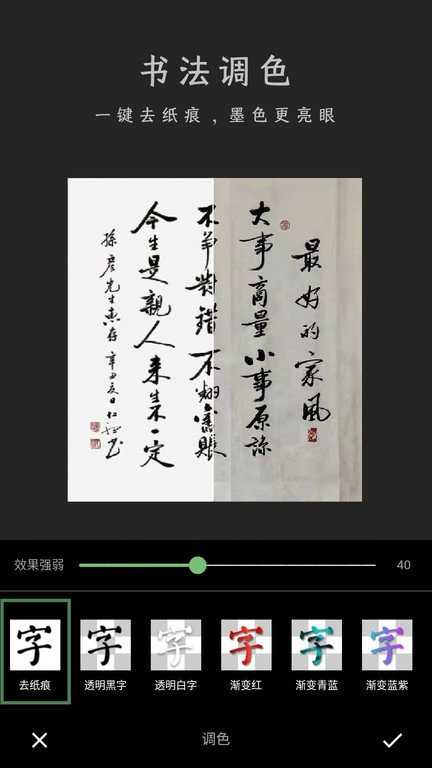 书法调色
一键去纸痕，墨色更亮眼
最好的家風
大事商量小事原谅
不争對錯不翻舊賬
今生是親人来生不一定
孫彦先生惠存辛丑夏日仁
效果强弱
40
字 字 字 字 字 字
去纸痕 透明黑字 透明白字 渐变红 渐变青蓝 渐变蓝紫
调色